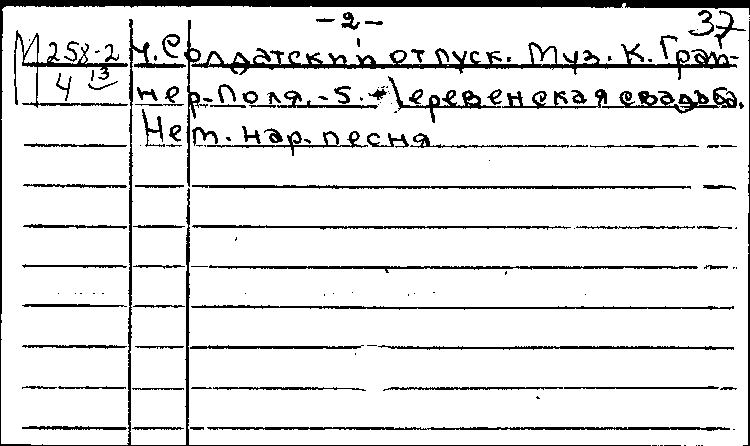 -2-
37
М 258-2 4. Солдатский отпуск. Муз. К. Грай-
4 13 нер-Поля. -5. Деревенская свадьба.
Нем. нар. песня